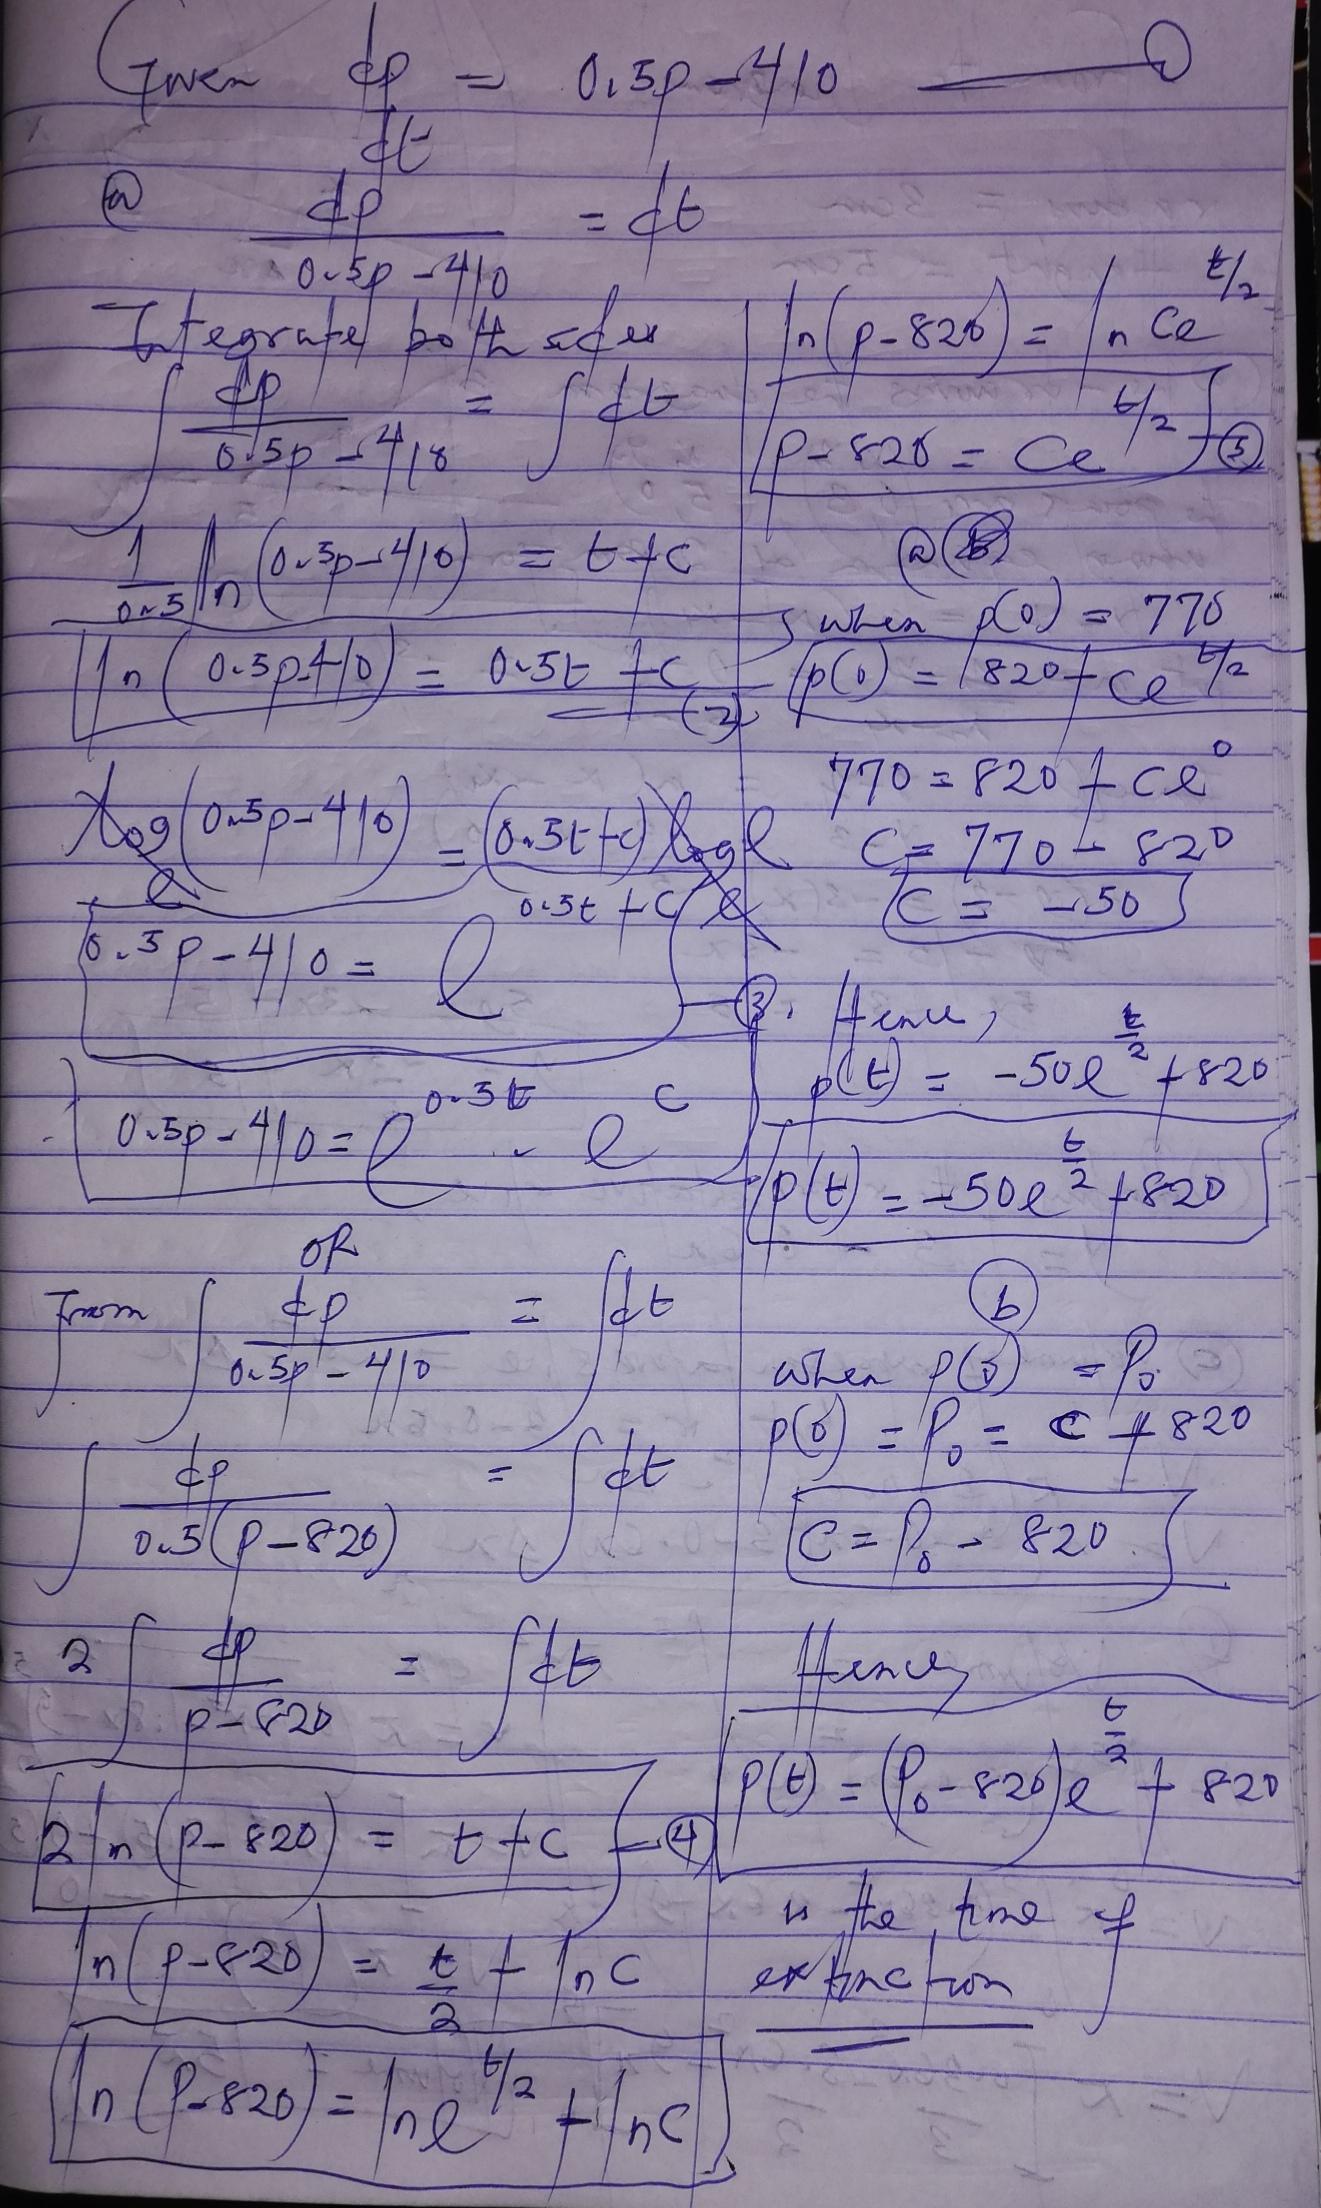 Given dp/dt = 0.5p - 410 — ①
ⓐ dp/(0.5p - 410) = dt
Integrate both sides
∫ dp/(0.5p - 410) = ∫ dt
1/0.5 ln(0.5p - 410) = t + c
ln(0.5p - 410) = 0.5t + c — (2)
log_e(0.5p - 410) = (0.5t + c) log_e e
0.5p - 410 = e^(0.5t + c) — ③
0.5p - 410 = e^(0.5t) . e^c
OR
From ∫ dp/(0.5p - 410) = ∫ dt
∫ dp/(0.5(p - 820)) = ∫ dt
2 ∫ dp/(p - 820) = ∫ dt
2 ln(p - 820) = t + c — ④
ln(p - 820) = t/2 + ln C
ln(P - 820) = ln e^(t/2) + ln C
ln(p - 820) = ln Ce^(t/2)
p - 820 = Ce^(t/2) — ⑤
when p(0) = 770
p(0) = 820 + Ce^(t/2)
770 = 820 + Ce^0
C = 770 - 820
C = -50
Hence,
p(t) = -50e^(t/2) + 820
p(t) = -50e^(t/2) + 820
ⓑ
when p(0) = P₀
p(0) = P₀ = C + 820
C = P₀ - 820
Hence,
p(t) = (P₀ - 820)e^(t/2) + 820
is the time of
extinction